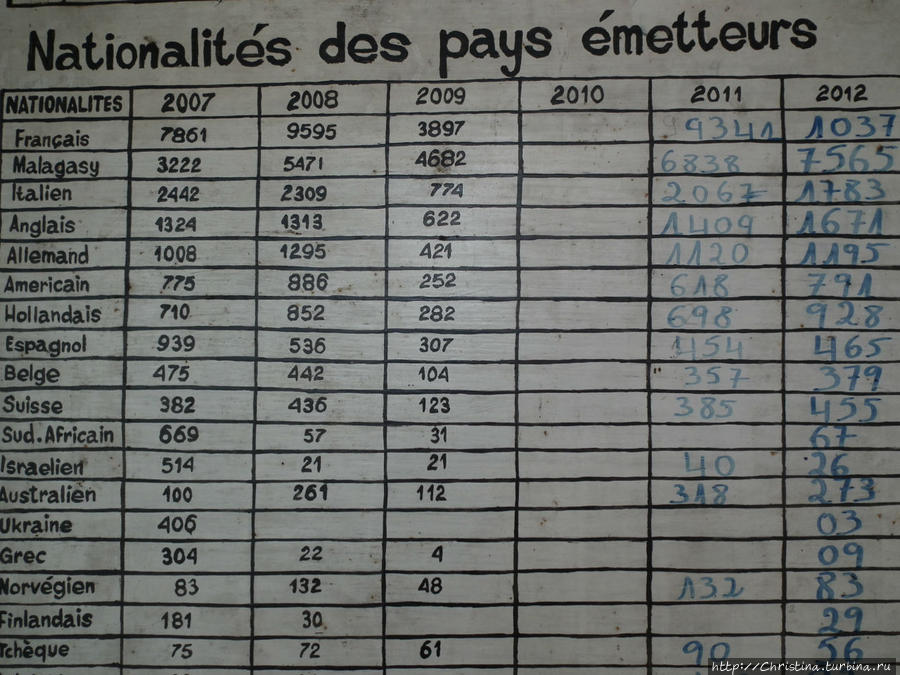 Nationalités des pays émetteurs
NATIONALITES 2007 2008 2009 2010 2011 2012
Français 7861 9595 3897 9341 1037
Malagasy 3222 5471 4682 6838 7565
Italien 2442 2309 774 2067 1783
Anglais 1324 1313 622 1409 1671
Allemand 1008 1295 421 1120 1195
Americain 775 886 252 618 791
Hollandais 710 852 282 698 928
Espagnol 939 536 307 454 465
Belge 475 442 104 357 379
Suisse 382 436 123 385 455
Sud.Africain 669 57 31 67
Israelien 514 21 21 40 26
Australien 100 261 112 318 273
Ukraine 406 03
Grec 304 22 4 09
Norvégien 83 132 48 132 83
Finlandais 181 30 29
Tchèque 75 72 61 90 56
http://Christina.turbina.ru